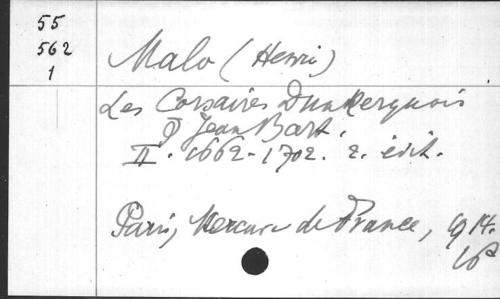 55
562
1
Malo (Henri)
Les Corsaires Dunkerquois
& Jean Bart.
II. 1662-1702. 2. édit.
Paris, Mercure de France, 1914.
16°